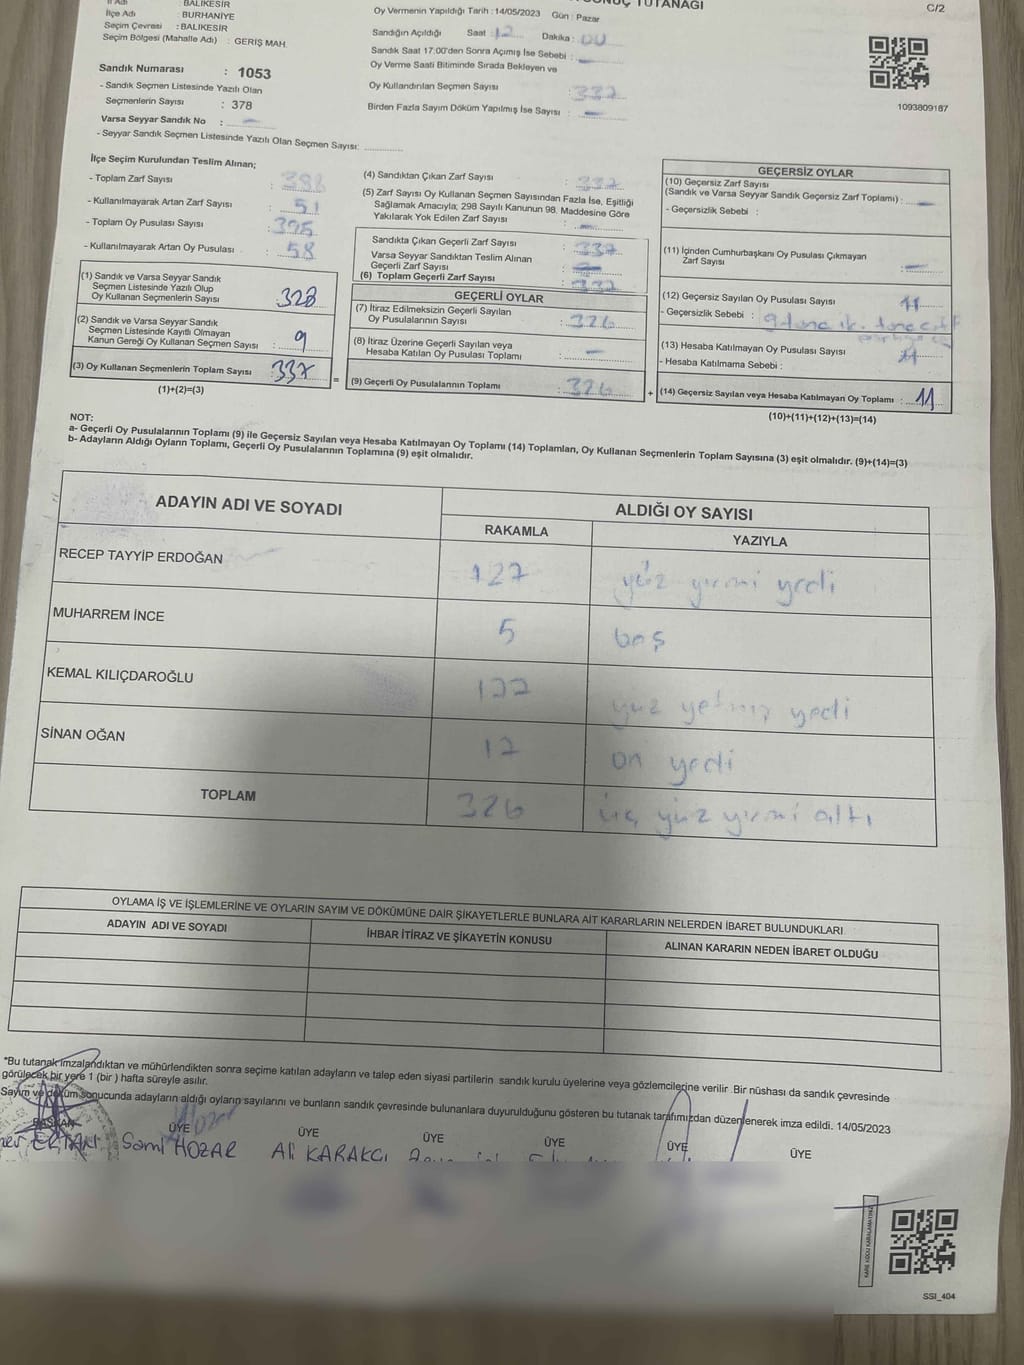 C/2
İlçe Adı : BURHANİYE
Seçim Çevresi : BALIKESİR
Seçim Bölgesi (Mahalle Adı) : GERİŞ MAH.
Oy Vermenin Yapıldığı Tarih : 14/05/2023 Gün : Pazar
Sandığın Açıldığı Saat : Dakika :
Sandık Saat 17:00'den Sonra Açımış İse Sebebi :
Oy Verme Saati Bitiminde Sırada Bekleyen ve
Oy Kullandırılan Seçmen Sayısı : 337
Birden Fazla Sayım Döküm Yapılmış İse Sayısı : -
Sandık Numarası : 1053
- Sandık Seçmen Listesinde Yazılı Olan
Seçmenlerin Sayısı : 378
Varsa Seyyar Sandık No : -
- Seyyar Sandık Seçmen Listesinde Yazılı Olan Seçmen Sayısı:
1093809187
İlçe Seçim Kurulundan Teslim Alınan;
- Toplam Zarf Sayısı :
- Kullanılmayarak Artan Zarf Sayısı : 51
- Toplam Oy Pusulası Sayısı : 395
- Kullanılmayarak Artan Oy Pusulası : 58
(1) Sandık ve Varsa Seyyar Sandık
Seçmen Listesinde Yazılı Olup
Oy Kullanan Seçmenlerin Sayısı : 328
(2) Sandık ve Varsa Seyyar Sandık
Seçmen Listesinde Kayıtlı Olmayan
Kanun Gereği Oy Kullanan Seçmen Sayısı : 9
(3) Oy Kullanan Seçmenlerin Toplam Sayısı : 337
(1)+(2)=(3)
=
(4) Sandıktan Çıkan Zarf Sayısı : 337
(5) Zarf Sayısı Oy Kullanan Seçmen Sayısından Fazla İse, Eşitliği
Sağlamak Amacıyla; 298 Sayılı Kanunun 98. Maddesine Göre
Yakılarak Yok Edilen Zarf Sayısı : -
Sandıkta Çıkan Geçerli Zarf Sayısı : 337
Varsa Seyyar Sandıktan Teslim Alınan
Geçerli Zarf Sayısı : -
(6) Toplam Geçerli Zarf Sayısı : 337
GEÇERLİ OYLAR
(7) İtiraz Edilmeksizin Geçerli Sayılan
Oy Pusulalarının Sayısı : 326
(8) İtiraz Üzerine Geçerli Sayılan veya
Hesaba Katılan Oy Pusulası Toplamı : -
(9) Geçerli Oy Pusulalarının Toplamı : 326
+
GEÇERSİZ OYLAR
(10) Geçersiz Zarf Sayısı
(Sandık ve Varsa Seyyar Sandık Geçersiz Zarf Toplamı) : -
- Geçersizlik Sebebi :
(11) İçinden Cumhurbaşkanı Oy Pusulası Çıkmayan
Zarf Sayısı : -
(12) Geçersiz Sayılan Oy Pusulası Sayısı : 11
- Geçersizlik Sebebi : 9 tane
(13) Hesaba Katılmayan Oy Pusulası Sayısı :
- Hesaba Katılmama Sebebi :
(14) Geçersiz Sayılan veya Hesaba Katılmayan Oy Toplamı : 11
(10)+(11)+(12)+(13)=(14)
NOT:
a- Geçerli Oy Pusulalarının Toplamı (9) ile Geçersiz Sayılan veya Hesaba Katılmayan Oy Toplamı (14) Toplamları, Oy Kullanan Seçmenlerin Toplam Sayısına (3) eşit olmalıdır. (9)+(14)=(3)
b- Adayların Aldığı Oyların Toplamı, Geçerli Oy Pusulalarının Toplamına (9) eşit olmalıdır.
ADAYIN ADI VE SOYADI ALDIĞI OY SAYISI
RAKAMLA YAZIYLA
RECEP TAYYİP ERDOĞAN 127 yüz yirmi yedi
MUHARREM İNCE 5 beş
KEMAL KILIÇDAROĞLU 177 yüz yetmiş yedi
SİNAN OĞAN 17 on yedi
TOPLAM 326 üç yüz yirmi altı
OYLAMA İŞ VE İŞLEMLERİNE VE OYLARIN SAYIM VE DÖKÜMÜNE DAİR ŞİKAYETLERLE BUNLARA AİT KARARLARIN NELERDEN İBARET BULUNDUKLARI
ADAYIN ADI VE SOYADI İHBAR İTİRAZ VE ŞİKAYETİN KONUSU ALINAN KARARIN NEDEN İBARET OLDUĞU
*Bu tutanak imzalandıktan ve mühürlendikten sonra seçime katılan adayların ve talep eden siyasi partilerin sandık kurulu üyelerine veya gözlemcilerine verilir. Bir nüshası da sandık çevresinde
görülecek bir yere 1 (bir ) hafta süreyle asılır.
Sayım ve döküm sonucunda adayların aldığı oyların sayılarını ve bunların sandık çevresinde bulunanlara duyurulduğunu gösteren bu tutanak tarafımızdan düzenlenerek imza edildi. 14/05/2023
BAŞKAN ÜYE ÜYE ÜYE ÜYE ÜYE ÜYE
Sami HOZAR Ali KARAKCI
KARE KODU KARALAMAYINIZ
SSI_404